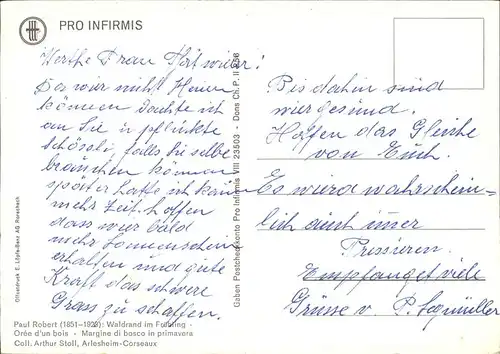 PRO INFIRMIS
Werthe Frau
Da wir nicht Heuen
können dachte ich
an Sie u. pflückte
falls Sie selbe
brauchen können
später hatte ich kaum
mehr Zeit. hoffen
dass wir bald
mehr Sonnenschein
erhalten und gute
Kraft das schwere
Grass zu schaffen.
Bis dahin sind
wir gesund.
Hoffen das Gleiche
von Euch.
Es wird wahrschein-
lich auch immer
Pressieren.
Empfanget viele
Grüsse v.
Gaben Postcheckkonto Pro Infirmis VIII 23503 - Dons Ch. P. II 258
Offsetdruck E. Löpfe-Benz AG Rorschach
Paul Robert (1851–1923): Waldrand im Frühling -
Orée d'un bois - Margine di bosco in primavera
Coll. Arthur Stoll, Arlesheim-Corseaux